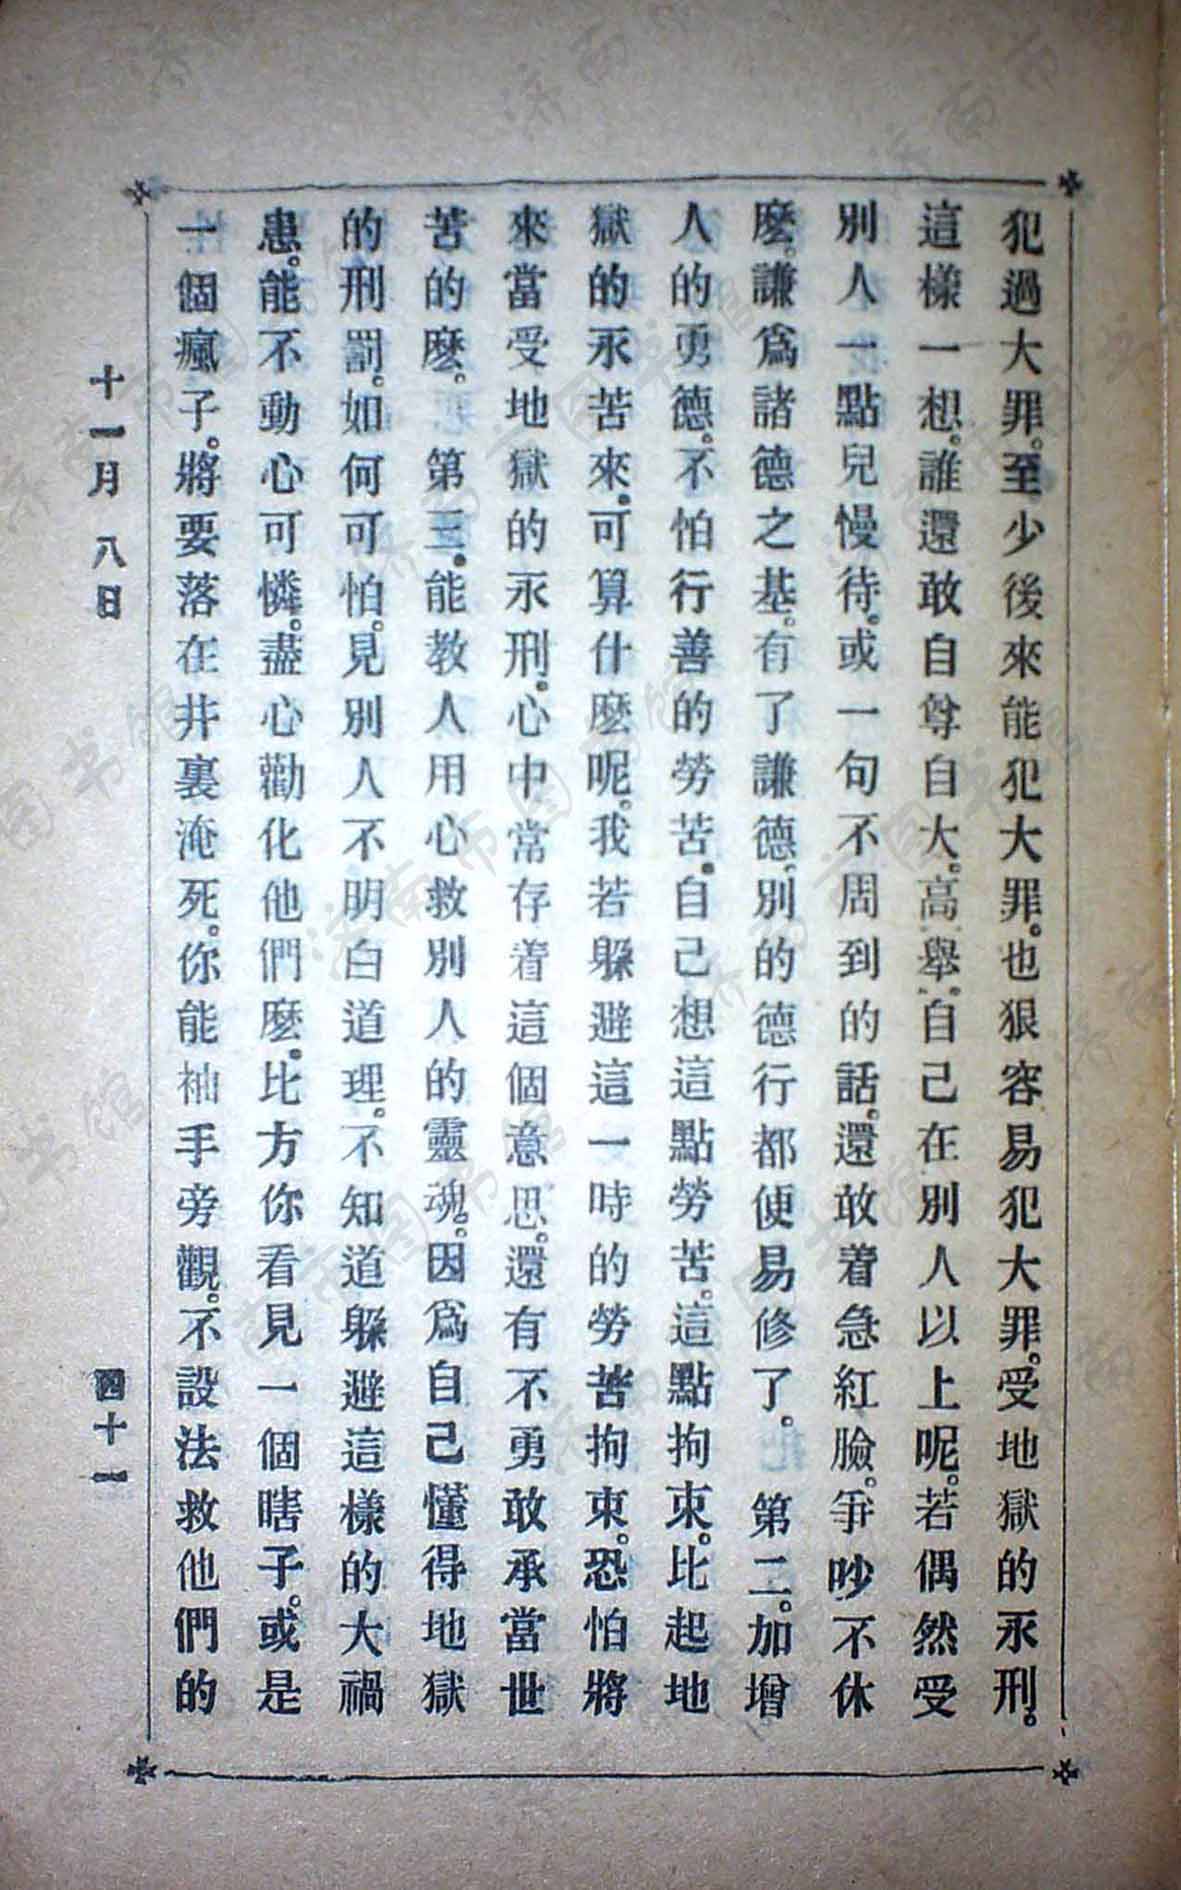 犯過大罪。至少後來能犯大罪。也狠容易犯大罪。受地獄的永刑。
這樣一想。誰還敢自尊自大。高舉自己在別人以上呢。若偶然受
別人一點兒慢待。或一句不周到的話。還敢着急紅臉。爭吵不休
麽。謙爲諸德之基。有了謙德。別的德行都便易修了。 第二。加增
人的勇德。不怕行善的勞苦。自己想這點勞苦。這點拘束。比起地
獄的永苦來。可算什麽呢。我若躲避這一時的勞苦拘束。恐怕將
來當受地獄的永刑。心中常存着這個意思。還有不勇敢承當世
苦的麽。 第三。能教人用心救別人的靈魂。因爲自己懂得地獄
的刑罰。如何可怕。見別人不明白道理。不知道躲避這樣的大禍
患。能不動心可憐。盡心勸化他們麽。比方你看見一個瞎子。或是
一個瘋子。將要落在井裏淹死。你能袖手旁觀。不設法救他們的
十一月 八日 四十一
济南市图书馆